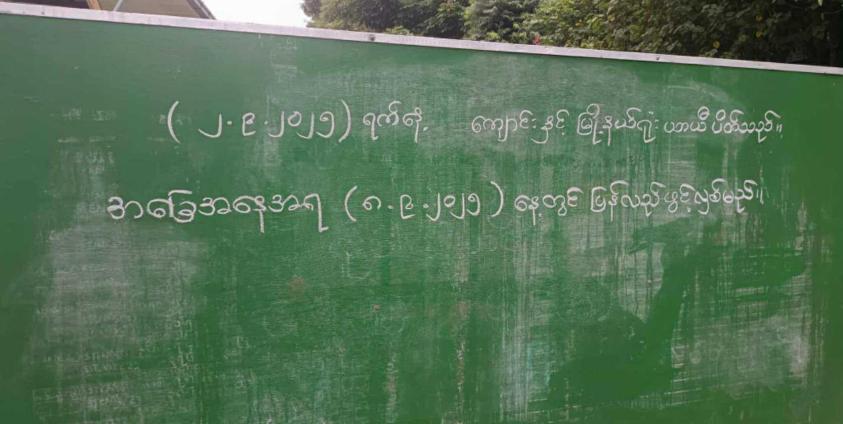 (၂.၉.၂၀၂၅) ရက်နေ့ ကျောင်းနှင့် မြို့နယ်ရုံး ယာယီပိတ်သည်။
အခြေအနေအရ (၈.၉.၂၀၂၅) နေ့တွင် ပြန်လည်ဖွင့်လှစ်မည်။